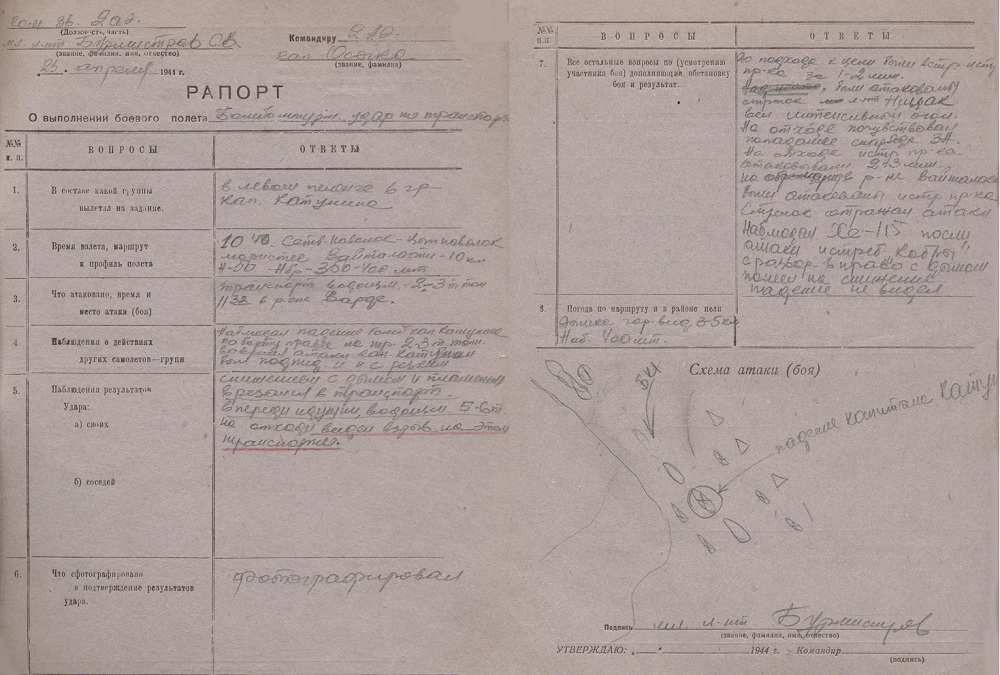 Ком. зв. 2аэ.
(Должность, часть)
мл. л-нт Бурмистров С.В.
(звание, фамилия, имя, отчество)
23. апреля 1944 г.
Командиру 2АЭ
кап. Осыка
(звание, фамилия)
РАПОРТ
О выполнении боевого полета Бомбоштурм. удар по транспорт.
№№ п. п. ВОПРОСЫ ОТВЕТЫ
1. В составе какой группы вылетал на задание.
в левом пеленге в гр
кап. Катунина
2. Время взлета, маршрут и профиль полета
10 40. Сетв-Наволок-Цып наволок
мористее Вайталахти-10 км.
Н-50 Нбр-350-400 мт
3. Что атаковано, время и место атаки (боя)
транспорт водоизм. 2-3 т тон
11 32 в р-оне Вардэ.
4 Наблюдения о действиях других самолетов—групи
Наблюдал падение бомб кап. Катунина
по борту правее на тр- 2-3 т. тонн.
во время атаки кап. Катунин
был подбит и с резким
снижением с дымом и пламенем
врезался в транспорт.
5. Наблюдения результатов
Удара:
а) своих
Впереди идущий, водоизм 5-6т
на отходе видел взрыв на этом
транспорте.
б) соседей
6. Что сфотографировано в подтверждение результатов удара.
фотографировал
№№ п.п. ВОПРОСЫ ОТВЕТЫ
7. Все остальные вопросы по (усмотрению участника боя) дополняющие обстановку боя и результат.
До подхода к цели были встр. ист
пр-ка за 1-2 мин.
были атакованы
стрелок мл. с-нт
вел интенсивный огонь.
На отходе почувствовал
попадание снаряда ЗА.
На отходе истр. пр-ка
атаковывали 2-3 мин.
на в р-не Вайталахти
были атакованы истр. пр-ка
Стрелок отражал атаки
Наблюдал Хе-115 после
атаки истреб. "Кобры"
с разворо. вправо с дымом
пошел на снижение
падение не видел
8. Погода по маршруту и в районе цели
дымка гор. вид 3-5км
Нобл 400 мт.
Схема атаки (боя)
БКН
падение капитана Катун
Подпись мл. л-нт Бурмистров
(звание, фамилия, имя, отчество)
УТВЕРЖДАЮ: „ “ 1944 г. - Командир
(подпись)